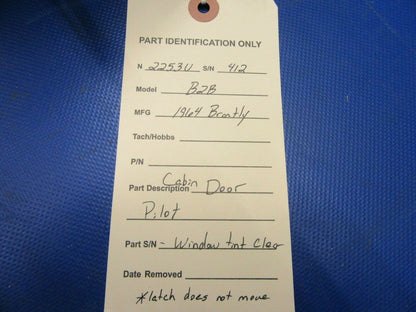 PART IDENTIFICATION ONLY
N 2253U S/N 412
Model B2B
MFG 1964 Brantly
Tach/Hobbs
P/N
Part Description Cabin Door
Pilot
Part S/N - Window tint Clear
Date Removed
*latch does not move